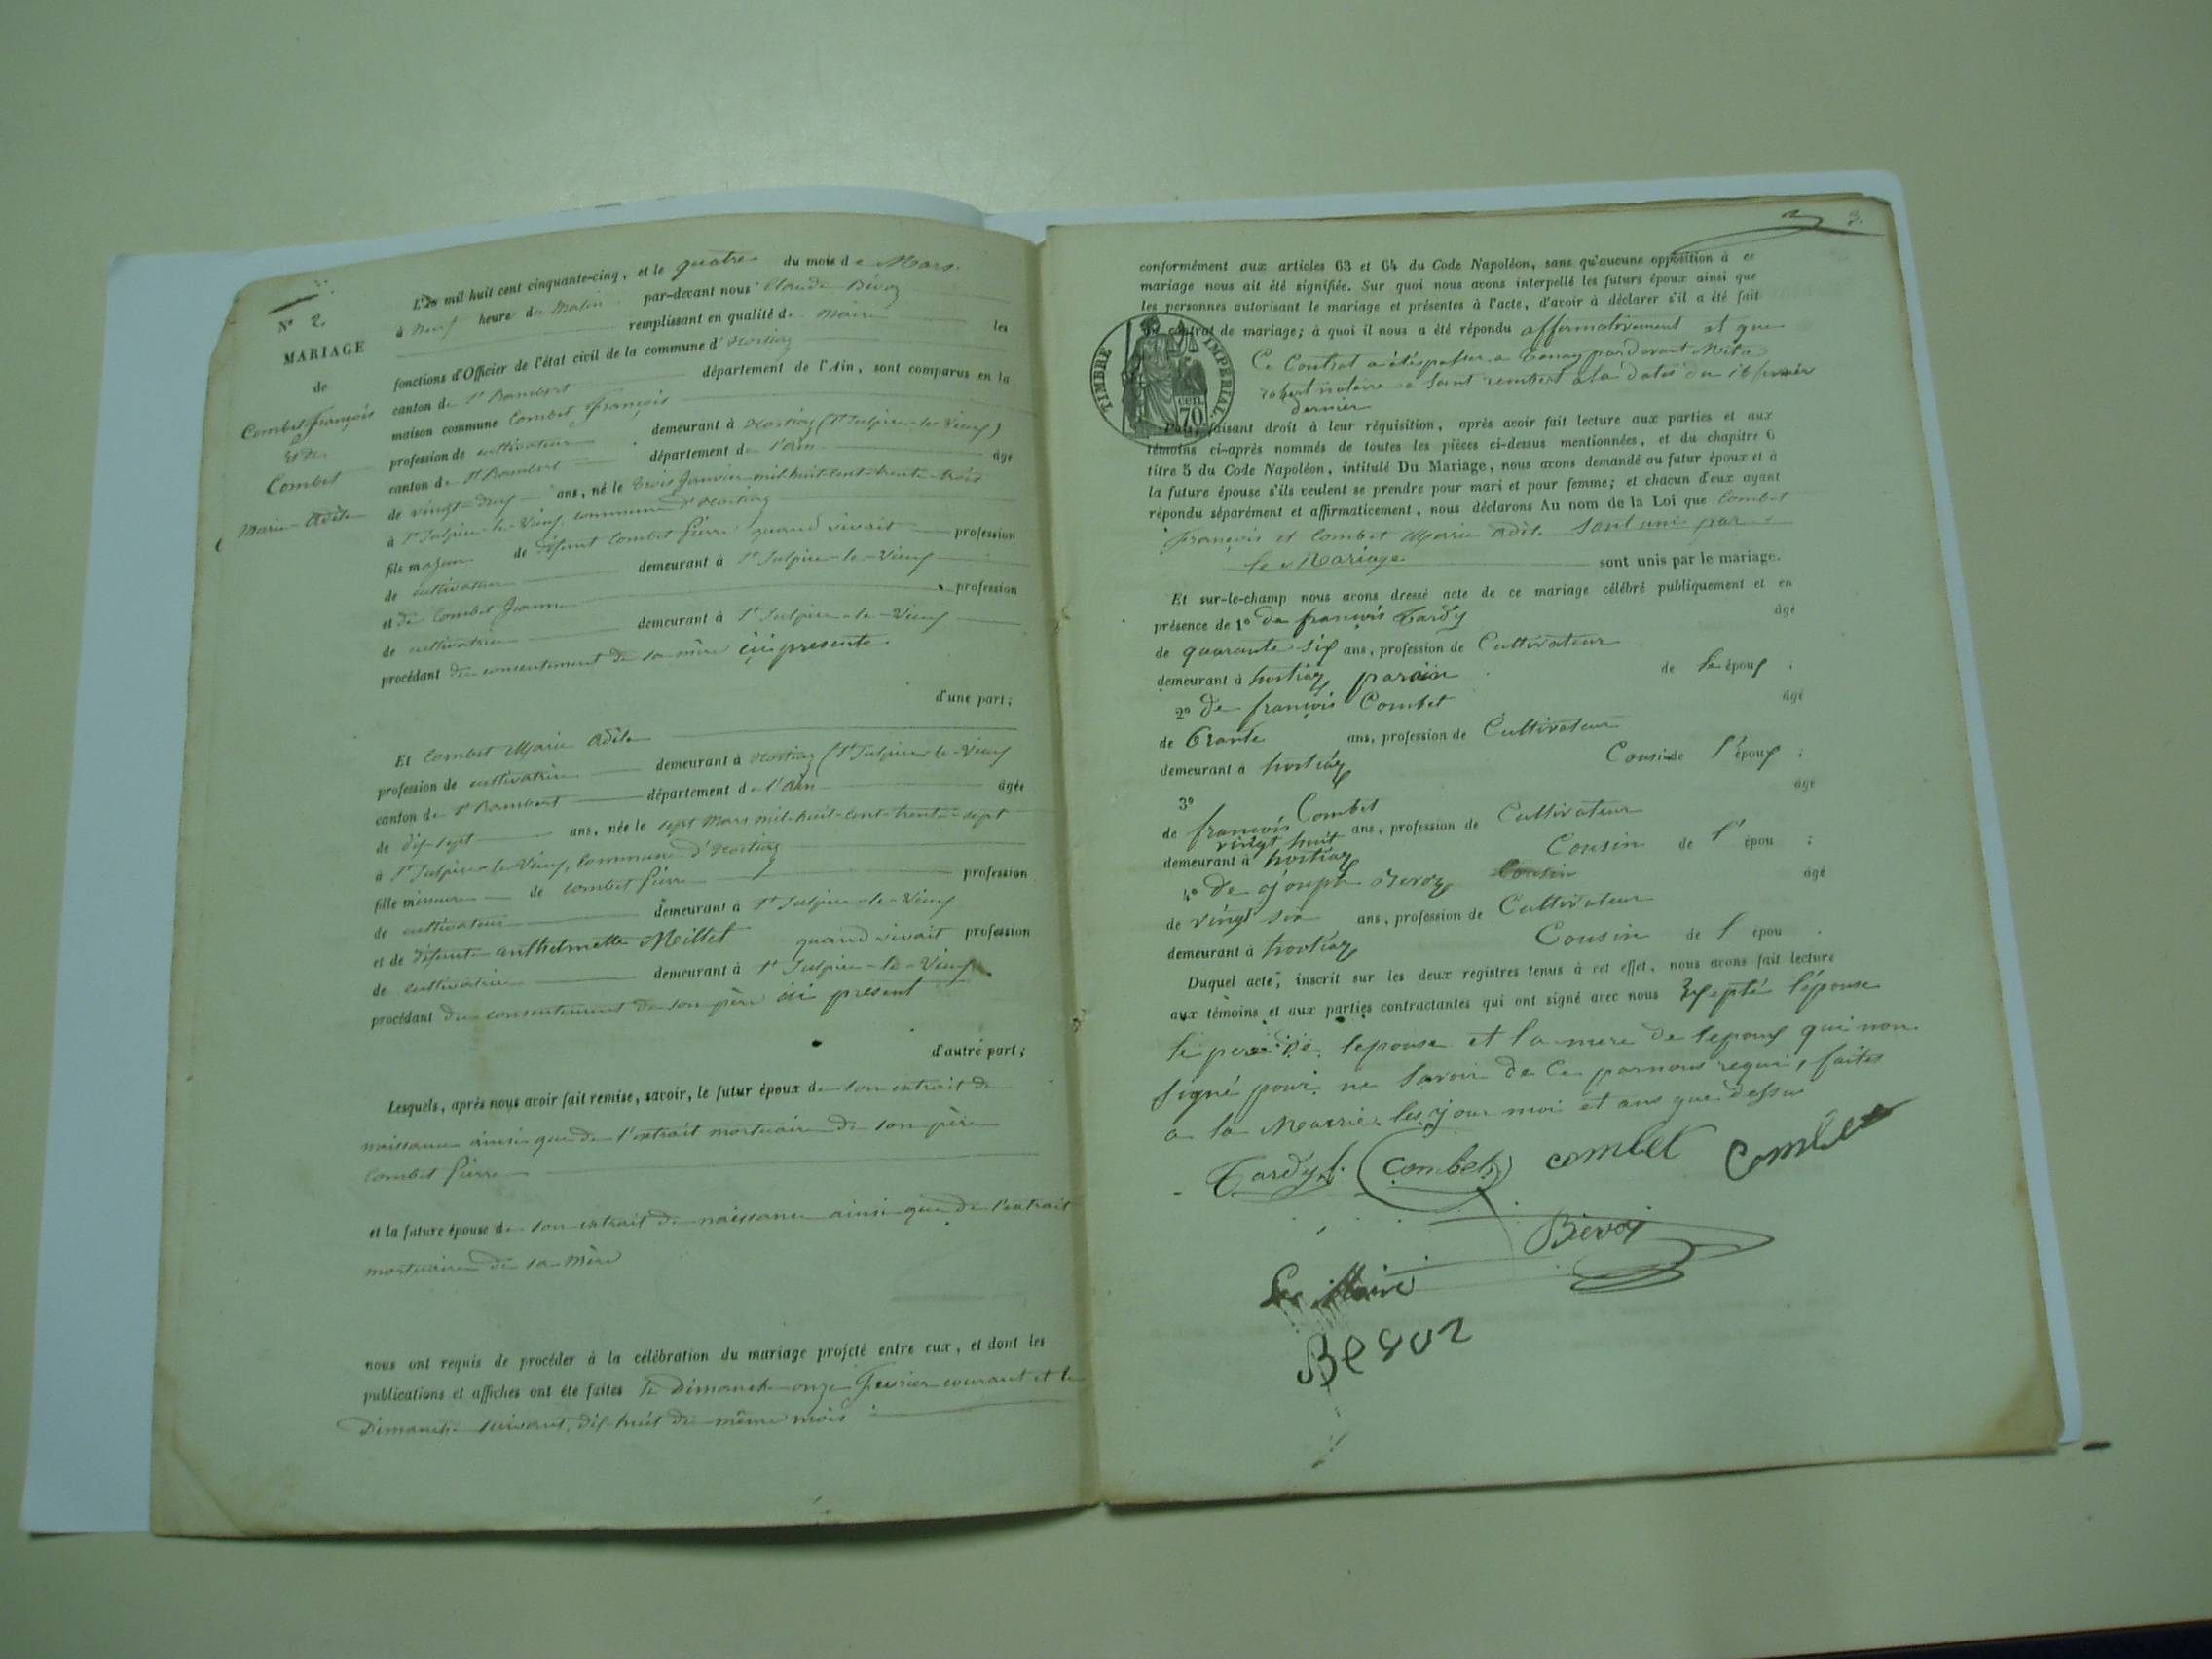 N° 2.
MARIAGE
de
Combet François
Et de
Combet
Marie-Adèle
L'an mil huit cent cinquante-cinq, et le quatre du mois de Mars
à neuf heure du Matin par-devant nous Claude Bévoz
remplissant en qualité de maire les
fonctions d'Officier de l'état civil de la commune d'Hostiaz
canton de St Rambert département de l'Ain, sont comparus en la
maison commune Combet François
profession de cultivateur demeurant à Hostiaz (St Sulpice-le-Vieux)
canton de St Rambert département de l'Ain âgé
de vingt-deux ans, né le trois Janvier mil-huit-cent-trente-trois
à St Sulpice-le-Vieux, commune d'Hostiaz
fils majeur de défunt Combet Pierre quand vivait profession
de cultivateur demeurant à St Sulpice-le-Vieux
et de Combet Jeanne profession
de cultivatrice demeurant à St Sulpice-le-Vieux
procédant du consentement de sa mère ici présente.
d'une part;
Et Combet Marie Adèle
profession de cultivatrice demeurant à Hostiaz (St Sulpice-le-Vieux
canton de St Rambert département de l'Ain âgée
de dix-sept ans, née le sept Mars mil-huit-cent-trente-sept
à St Sulpice-le-Vieux, commune d'Hostiaz
fille mineure de Combet Pierre profession
de cultivateur demeurant à St Sulpice-le-Vieux
et de défunte anthelmette Millet quand vivait profession
de cultivatrice demeurant à St Sulpice-le-Vieux
procédant du consentement de son père ici present
d'autre part;
Lesquels, après nous avoir fait remise, savoir, le futur époux de son extrait de
naissance ainsi que de l'extrait mortuaire de son père
Combet Pierre
et la future épouse de son extrait de naissance ainsi que de l'extrait
mortuaire de sa mère
nous ont requis de procéder à la célébration du mariage projeté entre eux, et dont les
publications et affiches ont été faites le Dimanche onze Fevrier courant et le
Dimanche suivant, dix-huit du même mois
3.
conformément aux articles 63 et 64 du Code Napoléon, sans qu'aucune opposition à ce
mariage nous ait été signifiée. Sur quoi nous avons interpellé les futurs époux ainsi que
les personnes autorisant le mariage et présentes à l'acte, d'avoir à déclarer s'il a été fait
contrat de mariage; à quoi il nous a été répondu affirmativement et que
Ce Contrat a été passer a tenay pardevant
robert notaire a Saint rembert a la date du 16 fevrier
dernier
TIMBRE IMPERIAL
cen. 70
faisant droit à leur réquisition, après avoir fait lecture aux parties et aux
témoins ci-après nommés de toutes les pièces ci-dessus mentionnées, et du chapitre 6
titre 5 du Code Napoléon, intitulé Du Mariage, nous avons demandé au futur époux et à
la future épouse s'ils veulent se prendre pour mari et pour femme; et chacun d'eux ayant
répondu séparément et affirmativement, nous déclarons Au nom de la Loi que Combet
François et Combet Marie adèle Sont uni par
le Mariage sont unis par le mariage.
Et sur-le-champ nous avons dressé acte de ce mariage célébré publiquement et en
présence de 1° de françois tardy âgé
de quarante six ans, profession de Cultivateur
demeurant à hostiaz parain de le époux ;
2° de françois Combet âgé
de trante ans, profession de Cultivateur
demeurant à hostiaz Cousi de l'époux ;
3° Combet âgé
de françois vingt huit ans, profession de Cultivateur
demeurant à hostiaz Cousin de l' épou ;
4° de joseph Bevoz âgé
de vingt six ans, profession de Cultivateur
demeurant à hostiaz Cousin de l épou
Duquel acte, inscrit sur les deux registres tenus à cet effet, nous avons fait lecture
aux témoins et aux parties contractantes qui ont signé avec nous Exepté l'épouse
le pere de lepouse et la mere de lepoux qui non
signé pour ne savoir de Ce parnous requi, faites
a la Mairie les jour moi et ans que dessus
Tardy f. Combet combet Combet
Bévoz
Le Maire
Bevoz